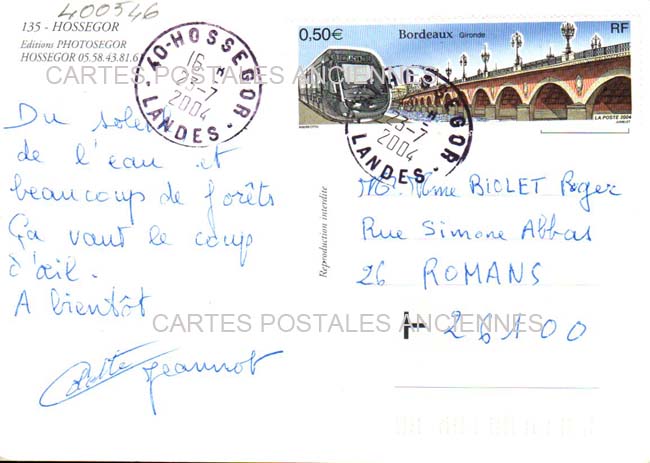 400546
135 - HOSSEGOR
Editions PHOTOSEGOR
HOSSEGOR 05.58.43.81.6
CARTES POSTALES ANCIENNES
40-HOSSEGOR
16 H
23-7
2004
LANDES
0,50€
Bordeaux - Gironde
RF
LA POSTE 2004
HOSSEGOR
23-7
2004
LANDES
Du soleil
de l'eau et
beaucoup de forêts
Ça vaut le coup
d'œil.
A bientôt
Odette Jeannot
Reproduction interdite
Mr. Mme BIOLET Roger
Rue Simone Abbas
26 ROMANS
26100
CARTES POSTALES ANCIENNES